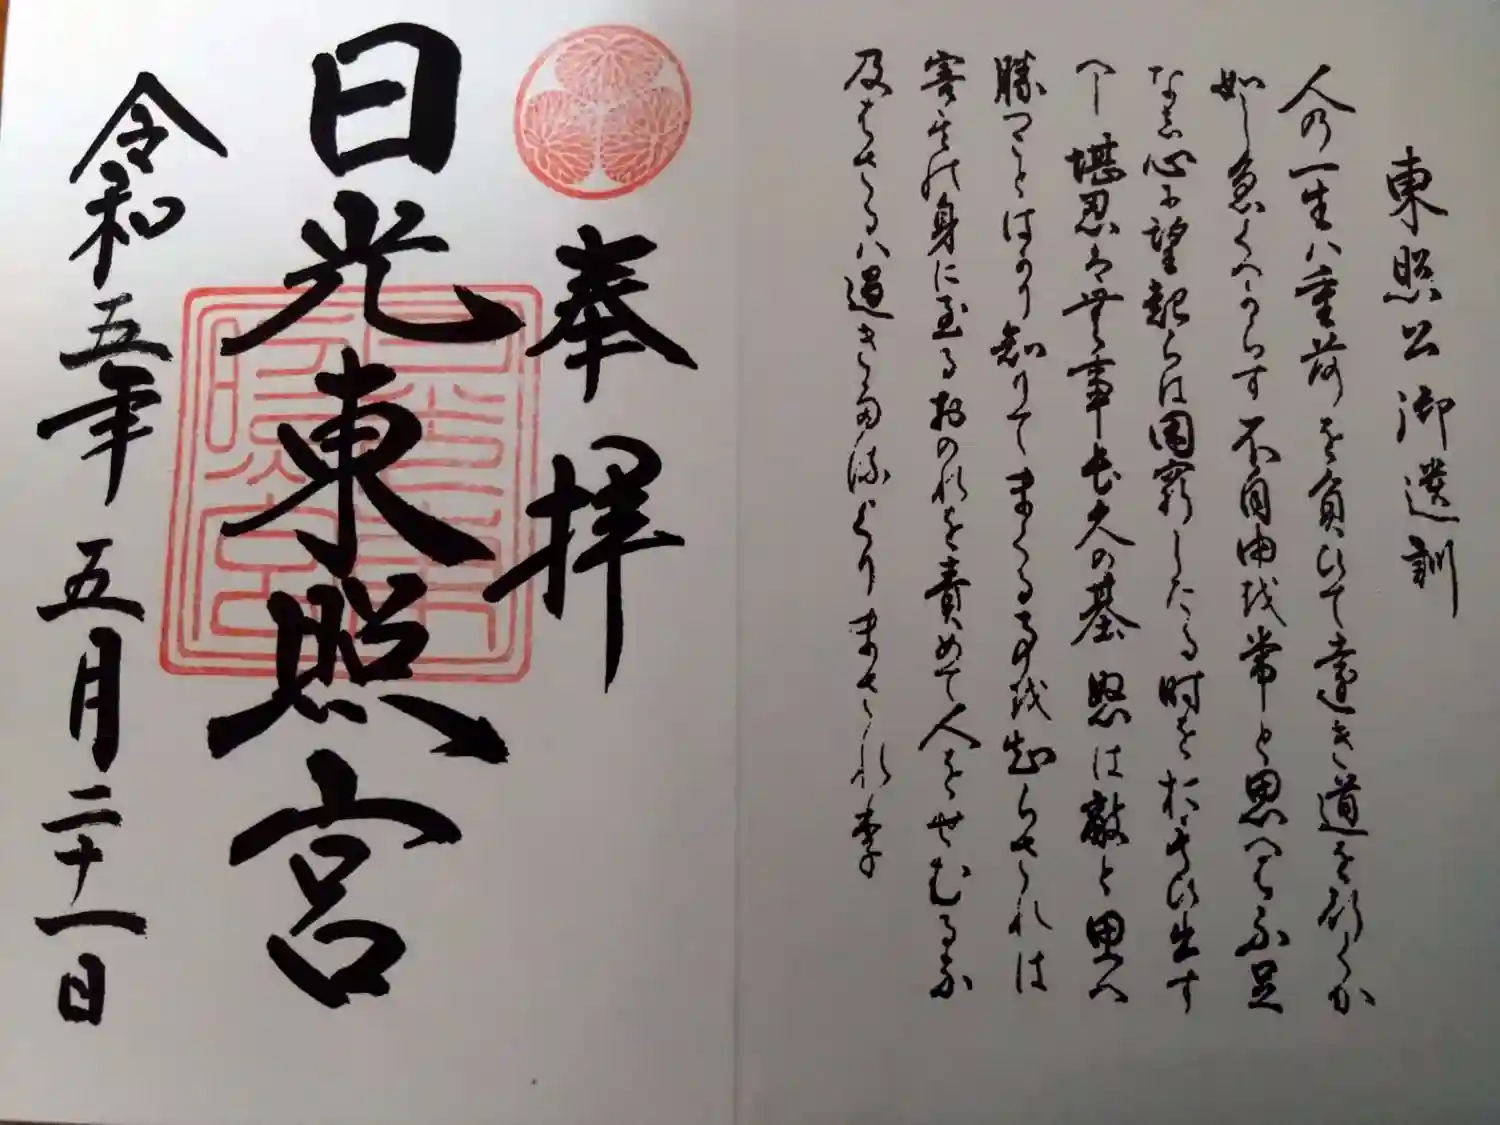 東照公御遺訓
人の一生ハ重荷を負ひて遠き道を行くか
如し急くへからす不自由を常と思へは不足
なし心に望起らは困窮したる時を思ひ出す
へし堪忍は無事長久の基怒は敵と思へ
勝つことはかり知りてまくる事を知らされは
害其の身に至るおのれを責めて人をせむるな
及はさるハ過きたるよりまされり
奉拝
日光東照宮
令和五年五月二十一日